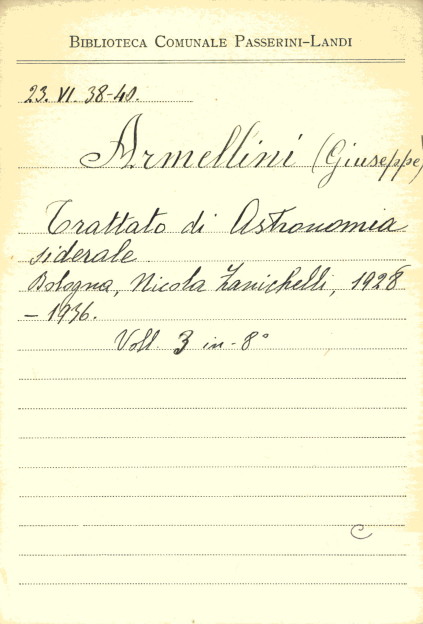 BIBLIOTECA COMUNALE PASSERINI-LANDI
23. VI. 38-40.
Armellini (Giuseppe)
Trattato di Astronomia
siderale.
Bologna, Nicola Zanichelli, 1928
- 1936.
Voll. 3 in-8°
C